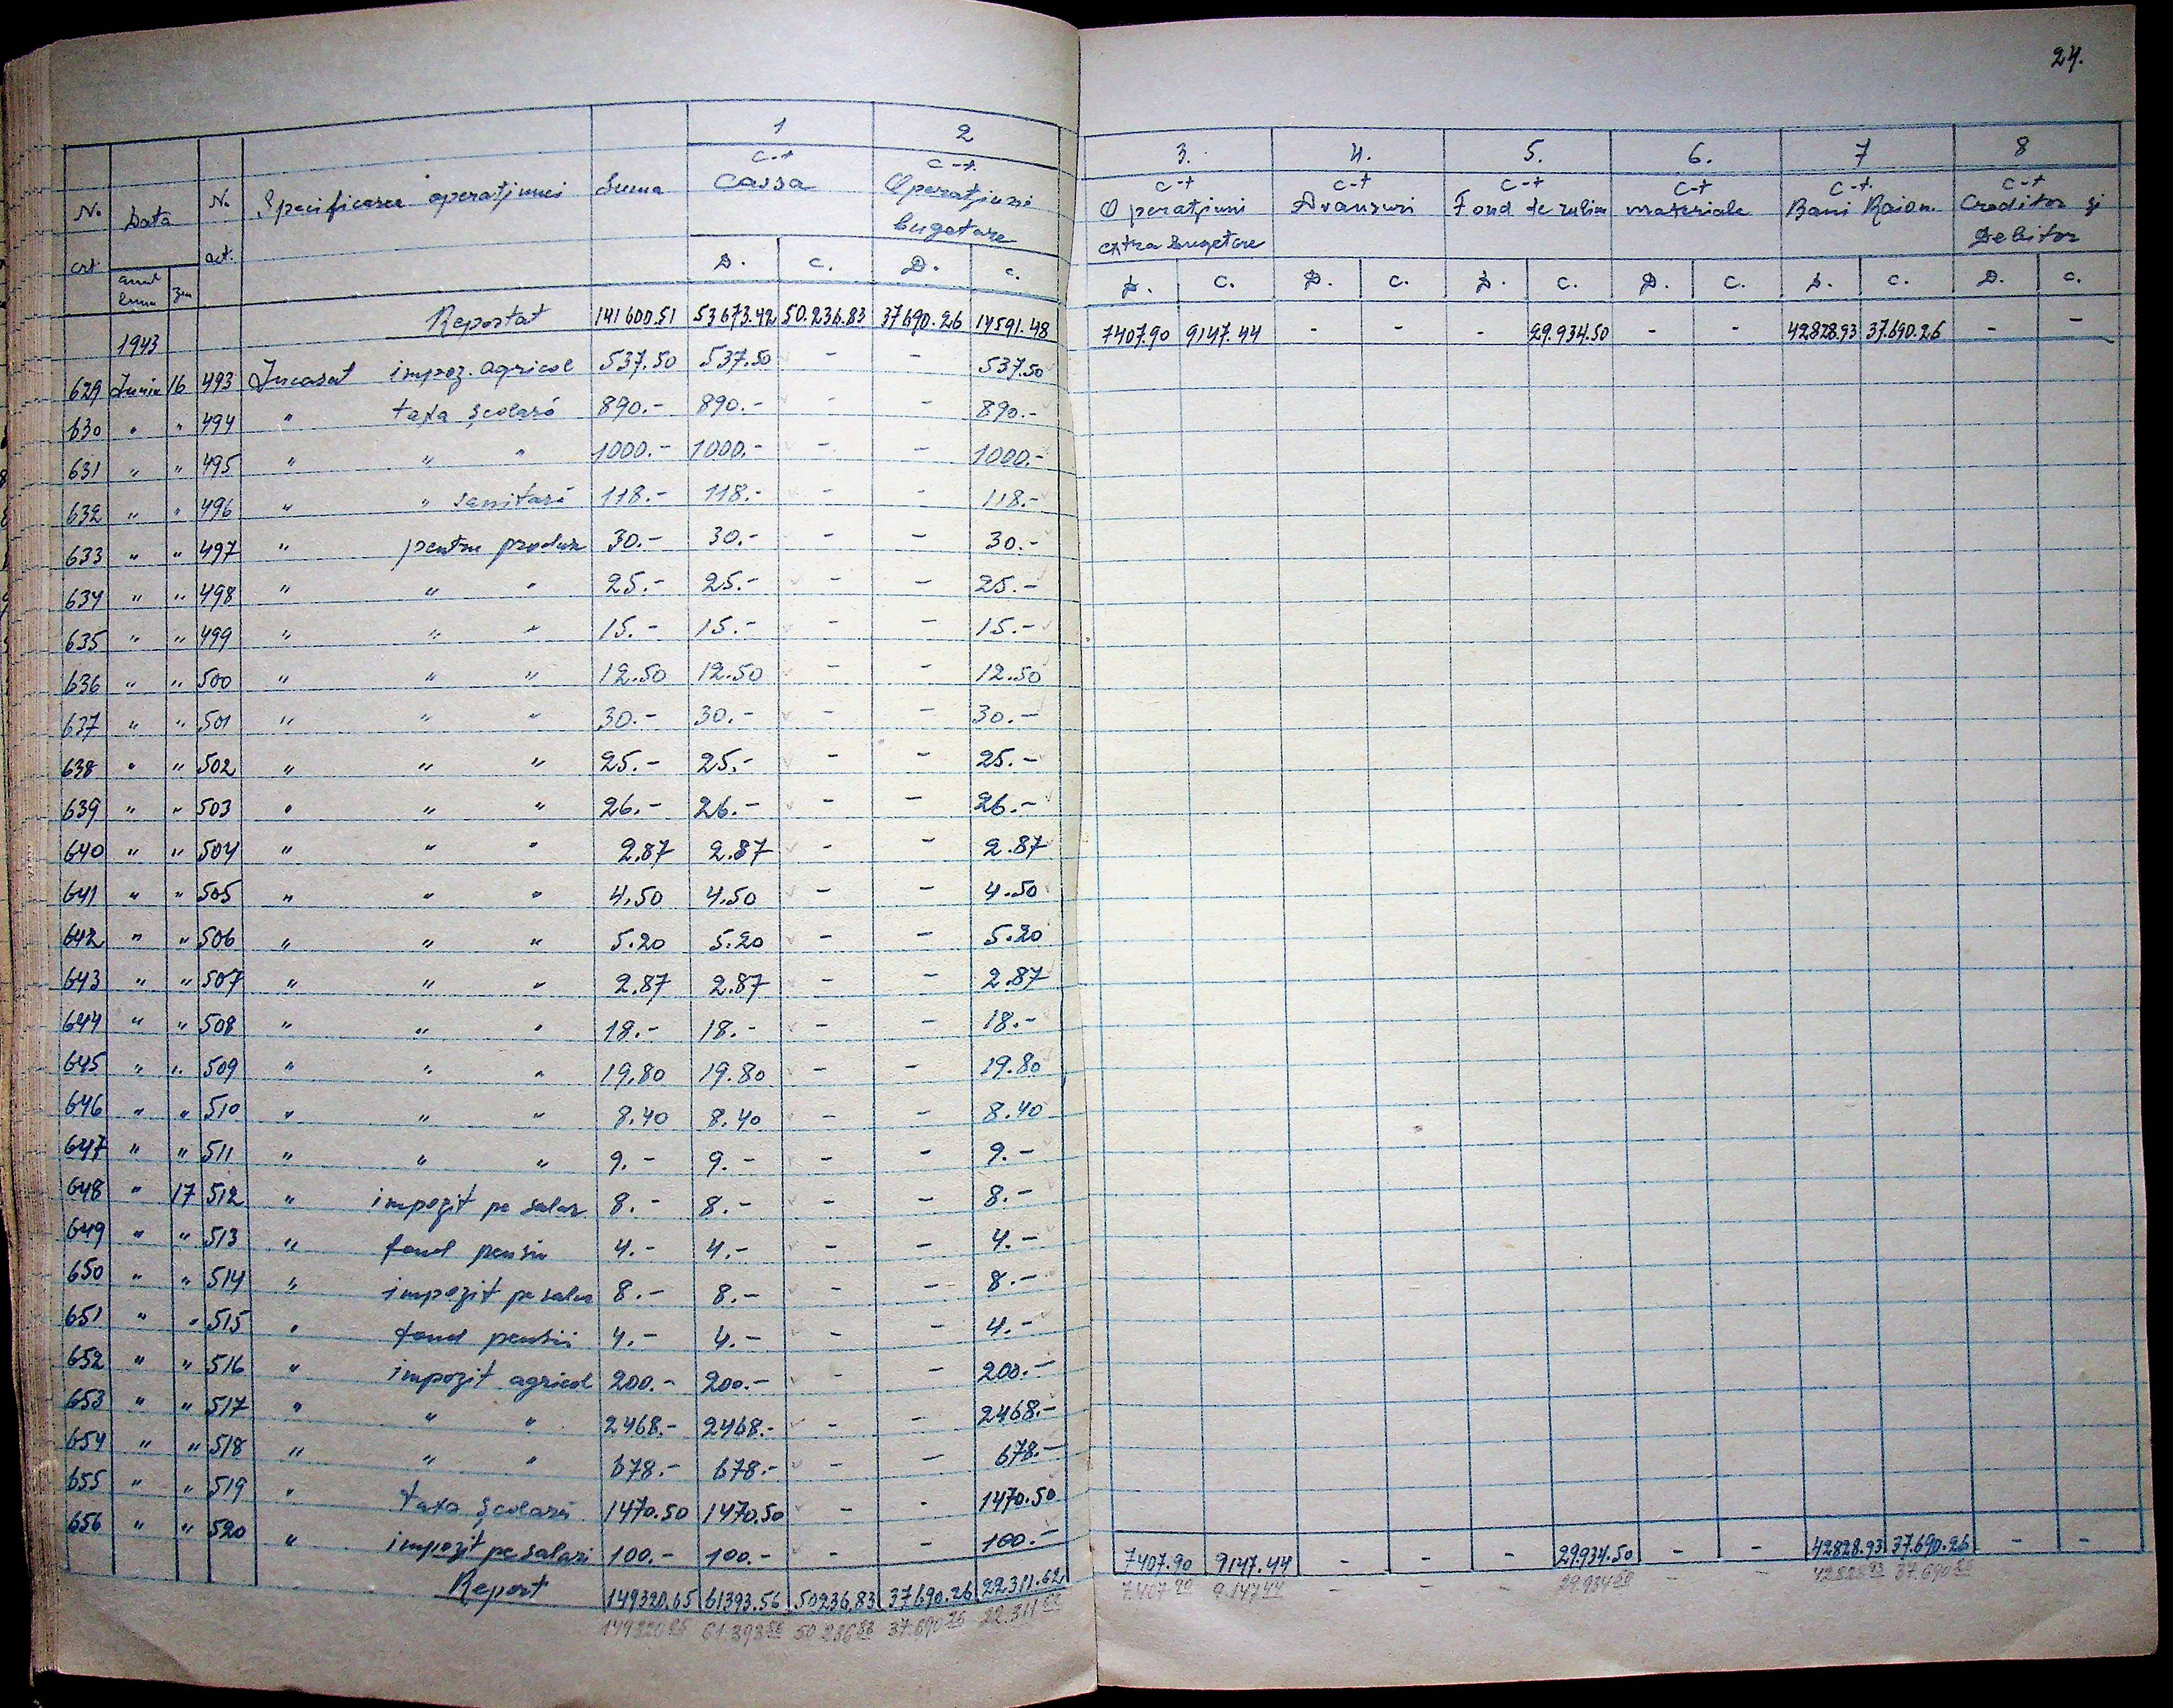 24.
1 2 3. 4. 5. 6. 7 8
No. crt. Data anul luna ziu No. act. Specificarea operațiunei Suma c-t Cassa c-t. Operațiuni bugetare c-t Operațiuni extra bugetare c-t Avansuri c-t Fond de rulim c-t materiale c-t. Bani Raion. c-t Creditor și Debitor
D. c. D. c. D. C. D. C. D. C. D. C. D. C. D. C.
Reportat 141600.51 53673.42 50.236.83 37690.26 14591.48 7407.90 9147.44 - - - 29.934.50 - - 42828.93 37.690.26 - -
1943
629 Iunie 16 493 Incasat impoz. agricol 537.50 537.50 - - 537.50
630 " " 494 " taxa școlară 890.- 890.- - - 890.-
631 " " 495 " " " 1000.- 1000.- - - 1000.-
632 " " 496 " " sanitară 118.- 118.- - - 118.-
633 " " 497 " pentru produse 30.- 30.- - - 30.-
634 " " 498 " " " 25.- 25.- - - 25.-
635 " " 499 " " " 15.- 15.- - - 15.-
636 " " 500 " " " 12.50 12.50 - - 12.50
637 " " 501 " " " 30.- 30.- - - 30.-
638 " " 502 " " " 25.- 25.- - - 25.-
639 " " 503 " " " 26.- 26.- - - 26.-
640 " " 504 " " " 2.87 2.87 - - 2.87
641 " " 505 " " " 4.50 4.50 - - 4.50
642 " " 506 " " " 5.20 5.20 - - 5.20
643 " " 507 " " " 2.87 2.87 - - 2.87
644 " " 508 " " " 18.- 18.- - - 18.-
645 " " 509 " " " 19.80 19.80 - - 19.80
646 " " 510 " " " 8.40 8.40 - - 8.40
647 " " 511 " " " 9.- 9.- - - 9.-
648 " 17 512 " impozit pe salar 8.- 8.- - - 8.-
649 " " 513 " fond pensii 4.- 4.- - - 4.-
650 " " 514 " impozit pe salar 8.- 8.- - - 8.-
651 " " 515 " fond pensii 4.- 4.- - - 4.-
652 " " 516 " impozit agricol 200.- 200.- - - 200.-
653 " " 517 " " " 2468.- 2468.- - - 2468.-
654 " " 518 " " " 678.- 678.- - - 678.-
655 " " 519 " taxa școlară 1470.50 1470.50 - - 1470.50
656 " " 520 " impozit pe salari 100.- 100.- - - 100.-
Report 149320.65 61393.56 50236.83 37690.26 22311.62 7407.90 9147.44 - - - 29934.50 - - 42828.93 37.690.26 - -
149320 65 61.393 56 50 236 83 37.690 26 22.311 62 7.407 90 9.147 44 - - - 29.934 50 - - 42828 93 37.690 26